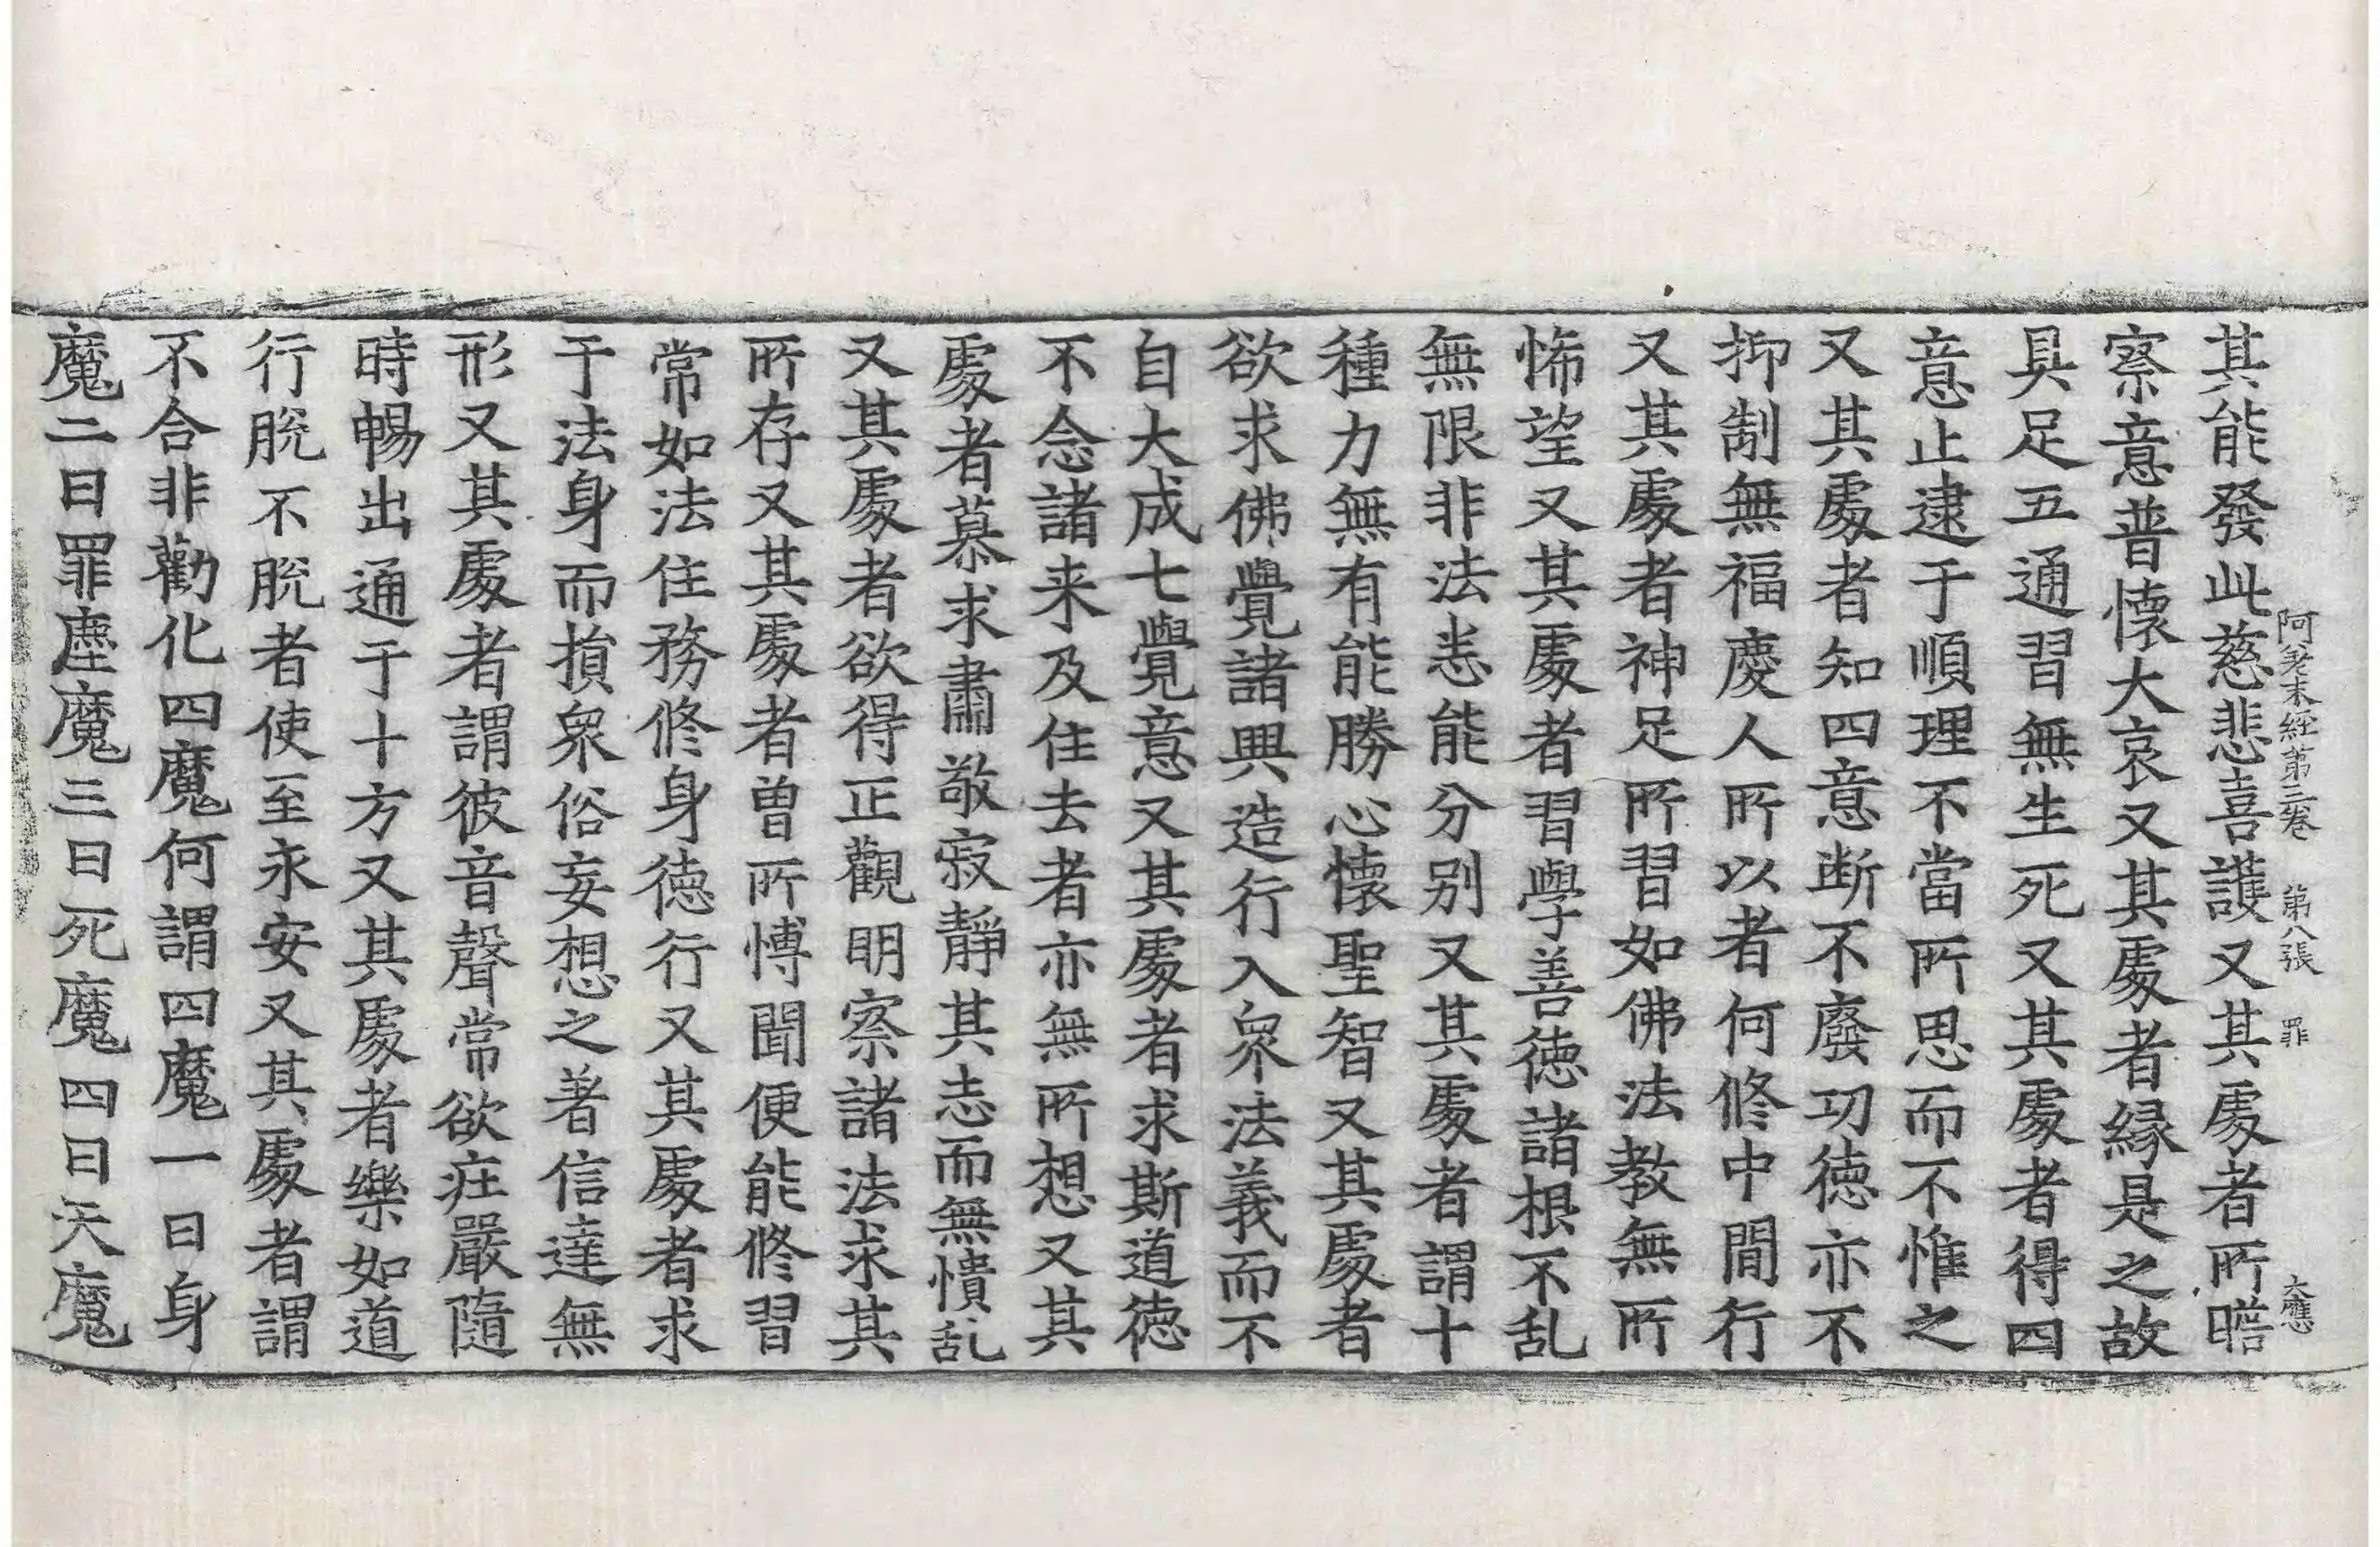 其能發此慈悲喜護又其處者所曕
阿差末經第三卷　第八張　罪　大應
察意普懷大哀又其處者緣是之故
具足五通習無生死又其處者得四
意止逮于順理不當所思而不惟之
又其處者知四意断不廢功德亦不
抑制無福慶人所以者何修中間行
又其處者神足所習如佛法教無所
悕望又其處者習學善德諸根不乱
無限非法恚能分别又其處者謂十
種力無有能勝心懷聖智又其處者
欲求佛覺諸興造行入衆法義而不
自大成七覺意又其處者求斯道德
不念諸来及住去者亦無所想又其
處者慕求肅敬寂靜其志而無憒乱
又其處者欲得正觀明察諸法求其
所存又其處者曾所博聞便能修習
常如法住務修身德行又其處者求
于法身而損衆俗妄想之著信達無
形又其處者謂彼音聲常欲莊嚴隨
時暢出通于十方又其處者樂如道
行脫不脫者使至永安又其處者謂
不合非勸化四魔何謂四魔一曰身
魔二曰罪塵魔三曰死魔四曰天魔